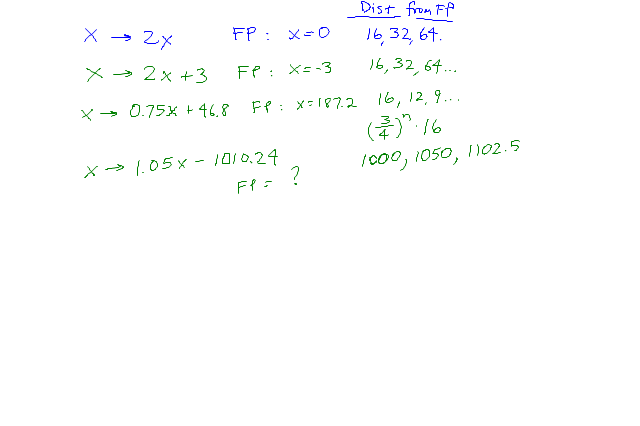 Dist from FP
x → 2x FP : x=0 16, 32, 64.
x → 2x+3 FP : x=-3 16, 32, 64...
x → 0.75x + 46.8 FP : x=187.2 16, 12, 9...
(3/4)^n · 16
x → 1.05x - 1010.24 1000, 1050, 1102.5
FP = ?